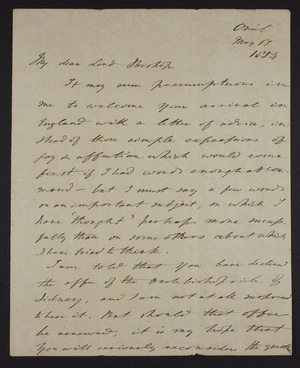 Oriel
May 17
1854
My dear Lord Bishop
It may seem presumptuous in
me to welcome your arrival in
England with a letter of advice, in-
stead of those simple expressions of
joy & affection which would come
first if I had words enough at com-
mand – but I must say a few words
on an important subject, on which I
have thought perhaps more
fully than on some others about which
I have tried to think.
I am told that you have declined
the offer of the Archbishoprick of
Sidney, and I am not at all surprised
to hear it. But should that offer
be renewed, it is my hope that
you will seriously reconsider the